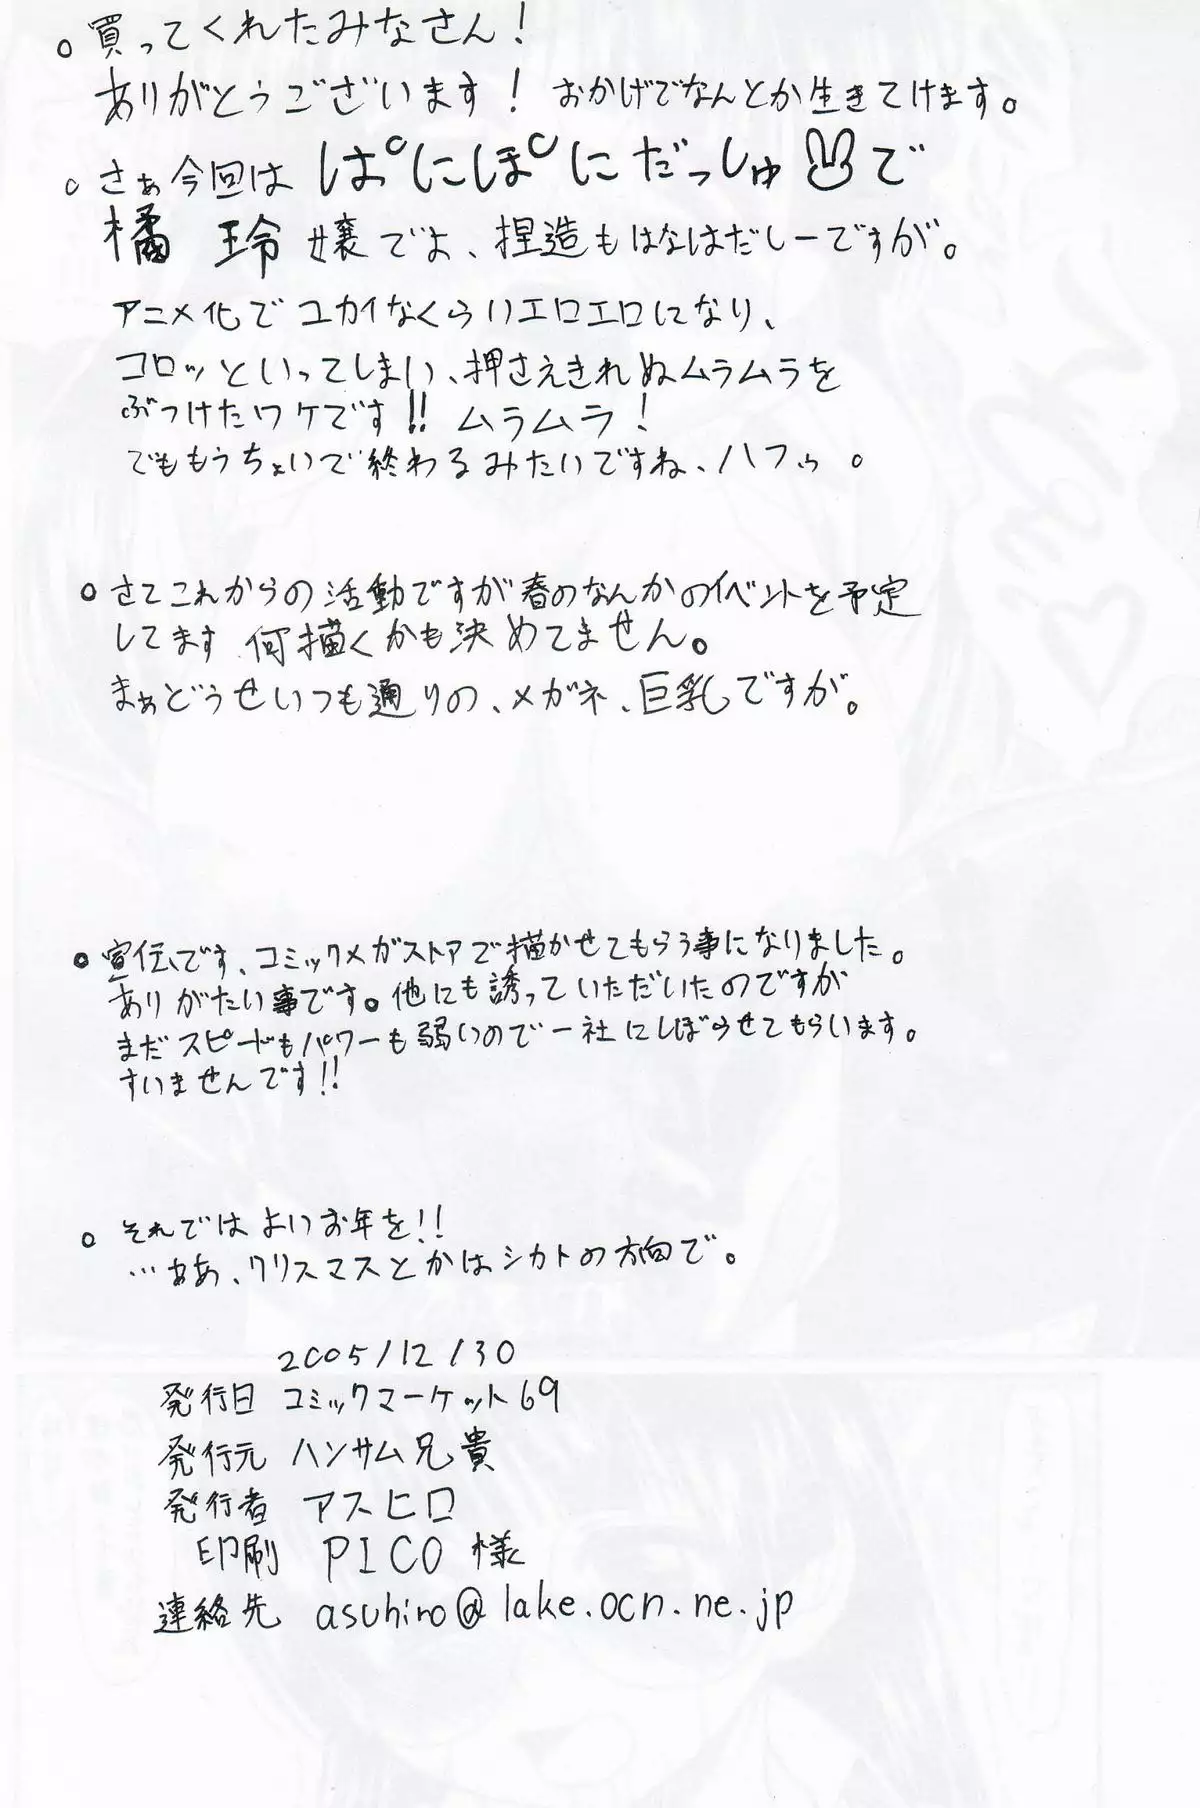 ○買ってくれたみなさん!
ありがとうございます! おかげでなんとか生きてけます。
○さぁ今回は ぱにぽにだっしゅで
橘 玲嬢でよ、捏造もはなはだしーですが。
アニメ化でユカイなくらいエロエロになり、
コロッといってしまい、押さえきれぬムラムラを
ぶつけたワケです!! ムラムラ!
でももうちょいで終わるみたいですね、ハフゥ。
○さてこれからの活動ですが春のなんかのイベントを予定
してます 何描くかも決めてません。
まぁどうせいつも通りの、メガネ、巨乳ですが。
○宣伝です、コミックメガストアで描かせてもらう事になりました。
ありがたい事です。他にも誘っていただいたのですが
まだスピードもパワーも弱いので一社にしぼらせてもらいます。
すいませんです!!
○それではよいお年を!!
…ああ、クリスマスとかはシカトの方向で。
2005/12/30
発行日 コミックマーケット69
発行元 ハンサム兄貴
発行者 アスヒロ
印刷 PICO様
連絡先 asuhiro@lake.ocn.ne.jp